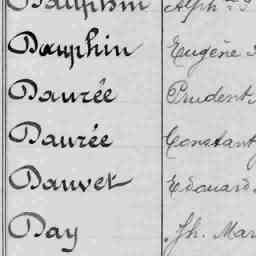 Dauphin Alph
Dauphin Eugène
Daurée Prudent
Daurée Constant
Dauvet Edouard
Day Jh. Mar